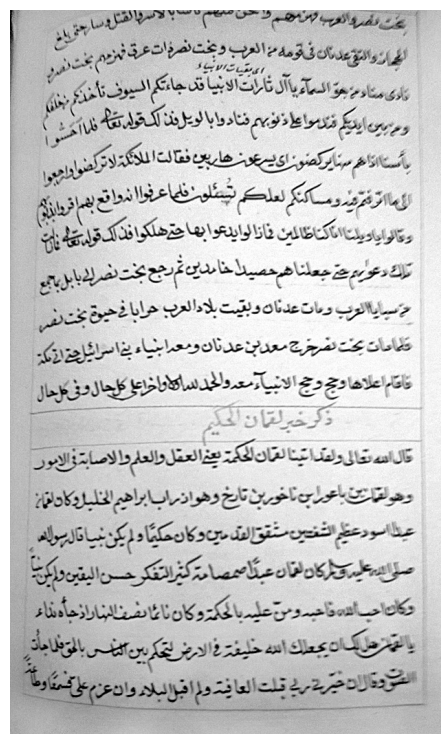 بخت نصر والعرب فهزمهم واكثر القتل وسار حتى بلغ
الحجاز والتقى عدنان فى قومه من العرب وبخت نصر ذات عرق فهزمهم بخت نصر
اى بقيات الانبياء
نادى مناد من جو السماء يا آل ثارات الانبيا قد جاءتكم السيوف تأخذكم من خلفكم
ومن بين ايديكم فندموا على ذنوبهم فنادوا بالويل فذلك قوله تعالى فلما احسوا
باسنا اذا هم منها يركضون اى يسرعون هاربين فقالت الملائكة لا تركضوا وارجعوا
الى ما اترفتم فيه ومساكنكم لعلكم تسئلون فلما عرفوا انه واقع بهم اقروا
وقالوا يا ويلنا انا كنا ظالمين فما زالوا يدعوا بها حتى هلكوا فذلك قوله تعالى فما زالت
تلك دعواهم حتى جعلناهم حصيدا خامدين ثم رجع بخت نصر الى بابل بما جمع
من سبايا العرب ومات عدنان وبقيت بلاد العرب خرابا فى حيوة بخت نصر
فلما مات بخت نصر خرج معد بن عدنان ومعه انبياء بنى اسرائيل حتى اتى مكة
فاقام اعلامها وحج وحج الانبياء معه والحمد لله اولا واخرا على كل حال وفى كل حال
ذكر خبر لقمان الحكيم
قال الله تعالى ولقد اتينا لقمان الحكمة يعنى العقل والعلم والاصابة فى الامور
وهو لقمان بن باعورا بن ناخور بن تارخ وهو اذر اب ابراهيم الخليل وكان لقمان
عبدا اسود عظيم الشفتين مشقق القدمين وكان حكيما ولم يكن نبيا قال رسول الله
صلى الله عليه وسلم كان لقمان عبدا صمصامة كثير التفكر حسن اليقين ولم يكن نبيا
وكان احب الله فاحبه ومن عليه بالحكمة وكان نائما نصف النهار اذ جأه نداء
يا لقمان هل لك ان يجعلك الله خليفة فى الارض لتحكم بين الناس بالحق فلما جأت
الصوت وقال ان خيرنى ربى قبلت العافية ولم اقبل البلاء وان عزم على فسمعا وطاعة